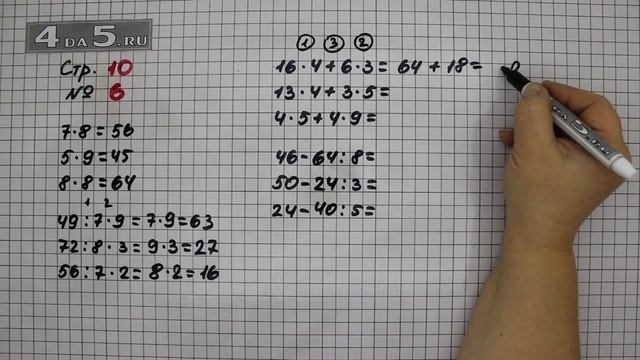 4 DA 5.RU
Стр. 10
№ 6
7·8=56
5·9=45
8·8=64
1 2
49:7·9=7·9=63
72:8·3=9·3=27
56:7·2=8·2=16
1 3 2
16·4+6·3=64+18=
13·4+3·5=
4·5+4·9=
46-64:8=
50-24:3=
24-40:5=